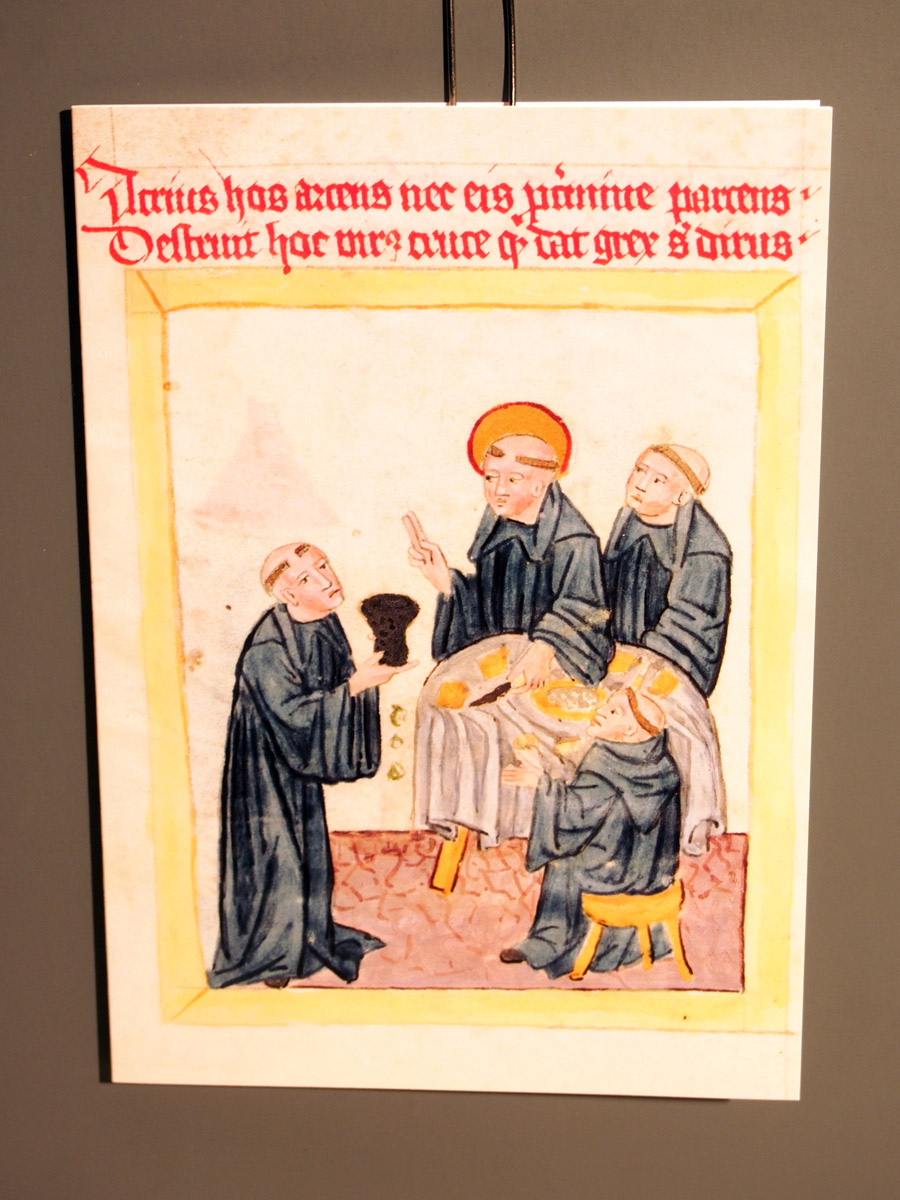 Acrius hos arcens nec eis parcens
Destruit hoc cruce dat grex dirus